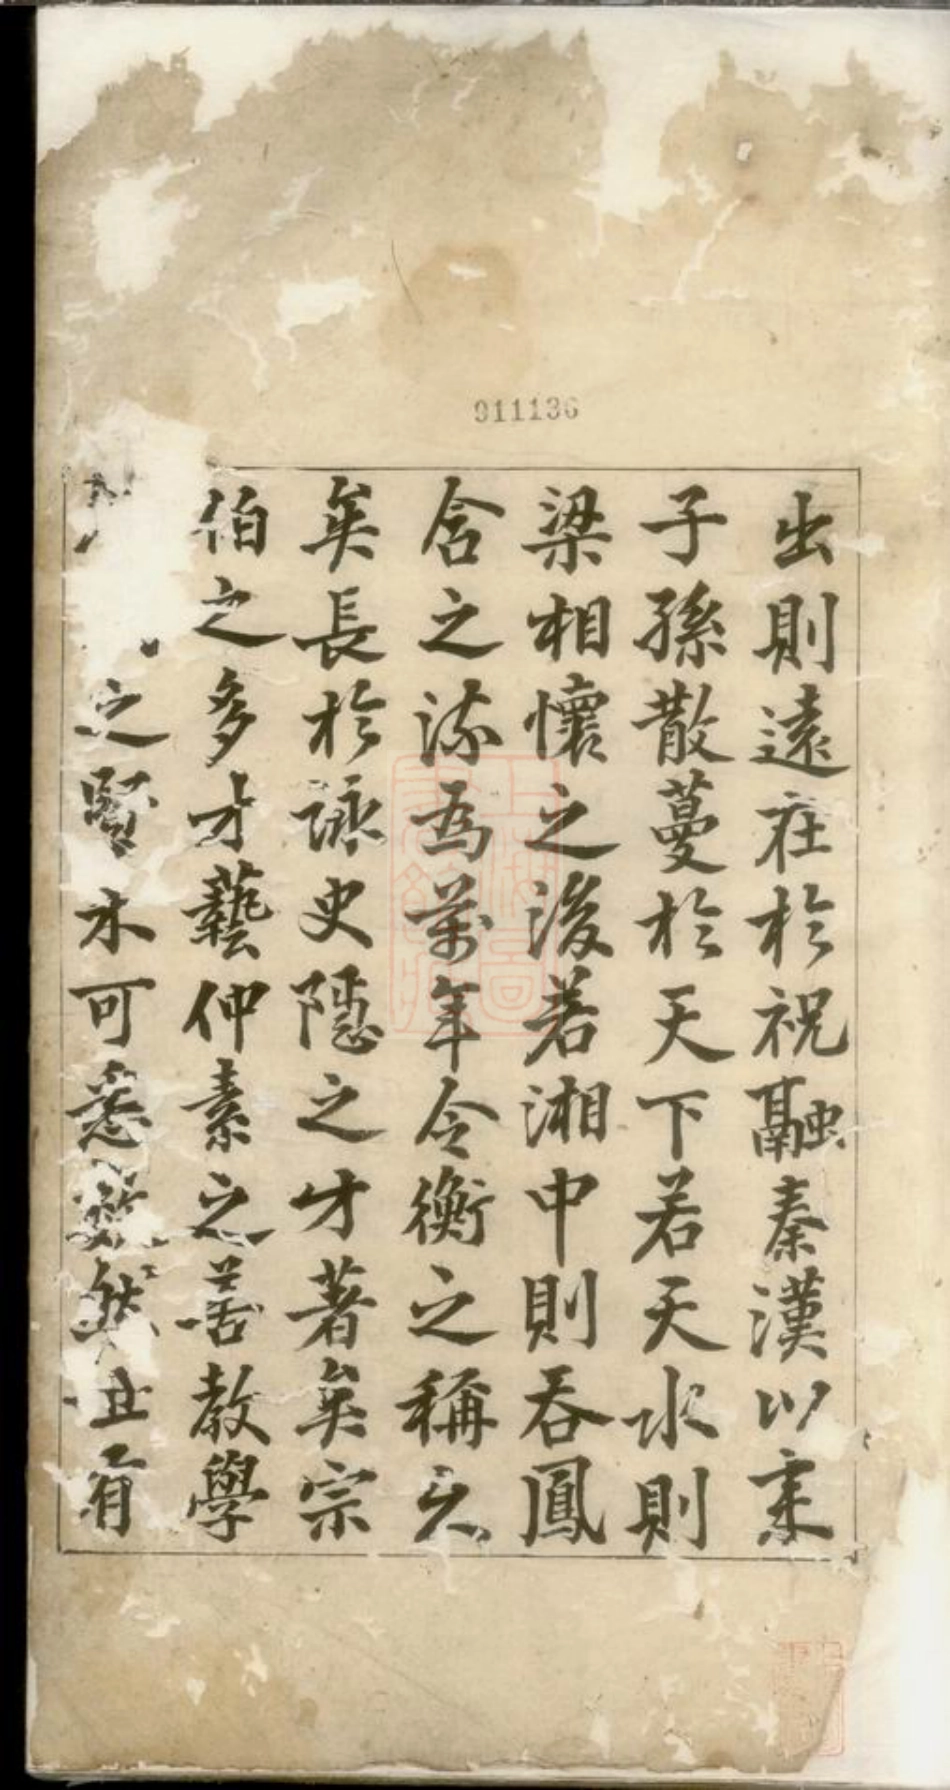 911136
出則遠在於祝融秦漢以來
子孫散蔓於天下若天水則
梁相懷之後若湘中則吞鳳
含之流為萬年令衡之稱久
矣長於詠史隱之才著矣宗
伯之多才藝仲素之善教學
之賢木可悉數然且有